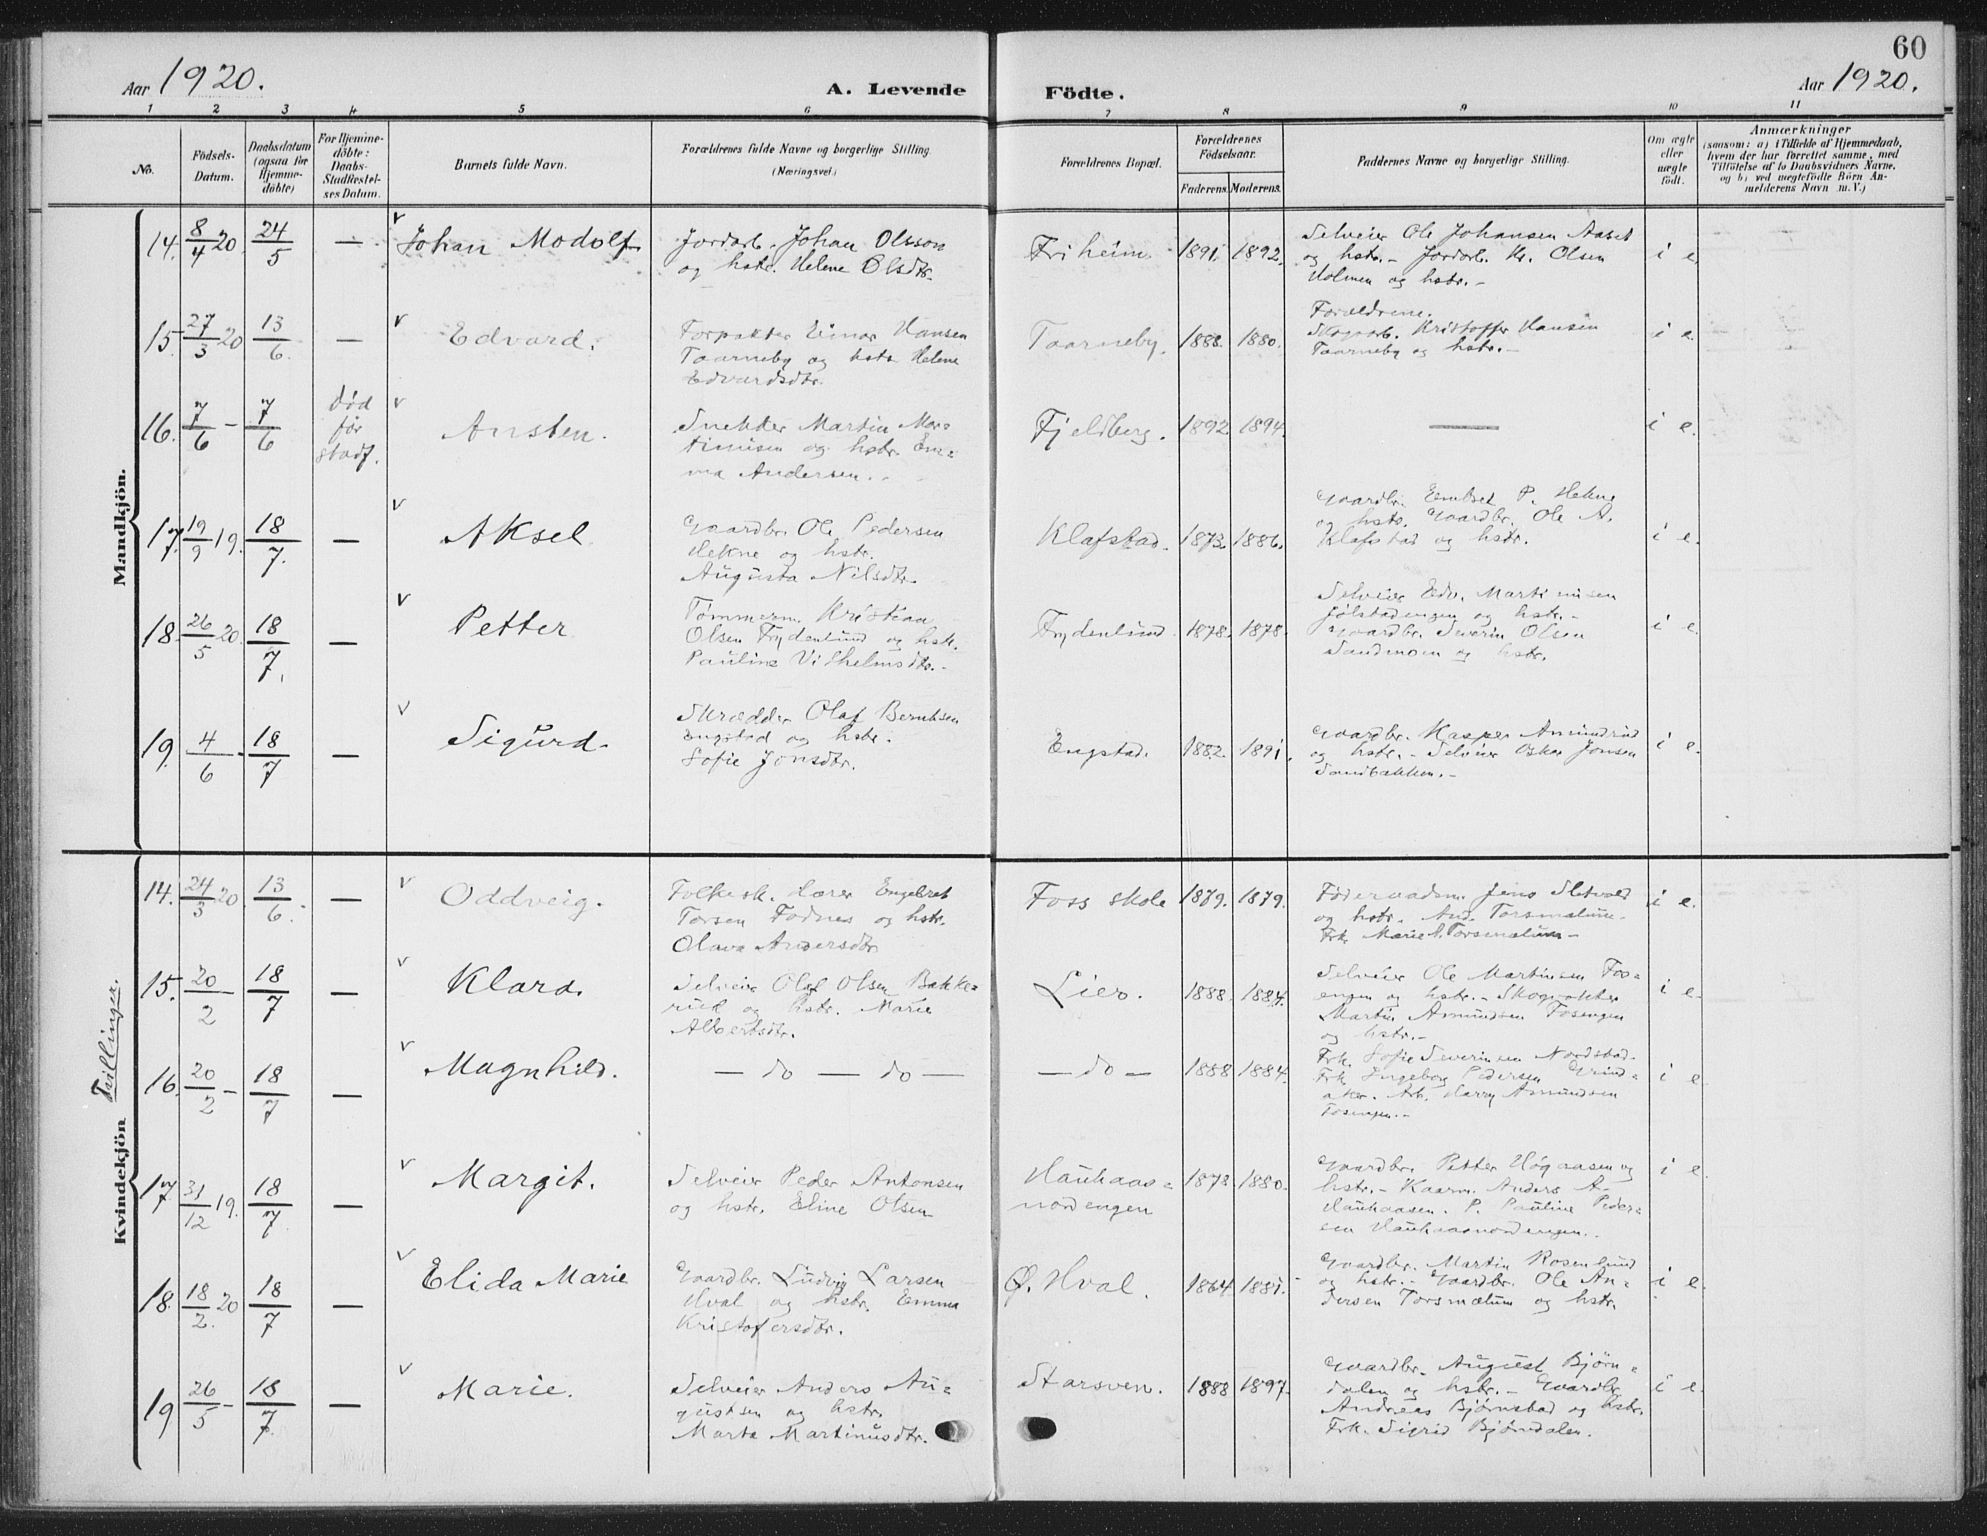 60
Aar 1920. A. Levende Födte. Aar 1920.
1 2 3 4 5 6 7 8 9 10 11
No.
Födsels-
Datum.
Daabsdatum
(ogsaa for
Hjemme-
döbte)
For Hjemme-
döbte:
Daabs-
Stadfæstel-
ses Datum.
Barnets fulde Navn.
Forældrenes fulde Navne og borgerlige Stilling
(Næringsvei.)
Forældrenes Bopæl.
Forældrenes
Födselsaar.
Faderens. Moderens.
Faddernes Navne og borgerlige Stilling.
Om ægte
eller
uægte
født.
Anmærkninger
(saasom: a) i Tilfælde af Hjemmedaab,
hvem der har forrettet samme, med
Tilföielse af to Daabsvidners Navne,
og b) ved uægtefödte Börn An-
melderens Navn m. V.)
Mandkjön.
14. 8/4 20 24/5 — v Johan Modolf Jordarb. Johan Olsson
og hstr. Helene Olsdtr.
Friheim 1891. 1892.
Selveier Ole Johansen Aaset
og hstr. - Jordarb. Kr. Olsen
Holmen og hstr. -
i e.
15. 27/3 20 13/6 — v Edvard. Forpakter Einar Hansen
Taarneby og hstr Helene
Edvardsdtr.
Taarneby. 1888. 1880.
Forældrene.
Skogarb. Kristoffer Hansen
Taarneby og hstr. -
i e.
16. 7/6 - 7/6 død
før
stadf.
v Ansten. Snekker Martin Mar=
tinusen og hstr. Em=
ma Andersen.
Fjeldberg. 1892 1894. — i e.
17. 19/9 19. 18/7. — v Aksel Gaardbr. Ole Pedersen
Hekne og hstr.
Augusta Nilsdtr.
Klafstad. 1873. 1886.
Gaardbr. Embret P. Hekne
og hstr. Gaardbr. Ole A.
Klafstad og hstr.
i e.
18. 26/5 20. 18/7. — v Petter Tømmerm. Kristian
Olsen Frydenlund og hstr.
Pauline Vilhelmsdtr. -
Frydenlund 1878. 1878.
Selveier Edv. Martinusen
Jølstadengen og hstr. -
Gaardbr. Severin Olsen
Sandmoen og hstr.
i e.
19. 4/6 - 18/7 — v Sigurd. Skrædder Olaf Berntsen
Engstad og hstr.
Sofie Jonsdtr.
Engstad. 1882. 1891.
Gaardbr. Kasper Amundrud
og hstr. - Selveier Oskar Jonsen
Sandbakken. -
i e.
Kvindekjön Tvillinger.
14. 24/3 20 13/6. — v Oddveig. Folkesk. Lærer Engebret
Torsen Fodnes og hstr.
Olava Andersdtr
Foss skole 1879. 1879.
Føderaadsm. Jens Sletvold
og hstr. And. Torsmælum.
Frk. Marie A. Torsmælum -
i e.
15. 20/2 18/7 — v Klara. Selveier Olaf Olsen Bakke=
rud og hstr. Marie
Albertsdtr.
Lier. 1888. 1884.
Selveier Ole Martinsen Fos=
engen og hstr. - Skogvokter
Martin Amundsen Fosengen
og hstr. -
i e.
16. 20/2 - 18/7 — v Magnhild. — do — do — — do — 1888 1884.
Frk. Sofie Severinsen Nordstad.
Frk. Ingeborg Pedersen Grind=
aker. Arb. Harry Amundsen
Fosengen. -
i e
17 31/12 19. 18/7. — v Margit. Selveier Peder Antonsen
og hstr. Eline Olsen
Hauhaas=
nordengen
1878 1880.
Gaardbr. Petter Høgaasen og
hstr. - Kaarm. Anders A.
Hauhaasen. P. Pauline Peder=
sen Hauhaasnordengen.
i e
18. 18/2. 20 18/7 — v Elida Marie Gaardbr. Ludvig Larsen
Hval og hstr. Emma
Kristofersdtr.
Ø. Hval. 1864. 1881.
Gaardbr. Martin Rosenlund
og hstr. - Gaardbr. Ole An=
dersen Torsmælum og hstr.
i e.
19 26/5 - 18/7. — v Marie. Selveier Anders Au=
gustsen og hstr.
Marta Martinusdtr.
Starsven. 1888 1897.
Gaardbr. August Bjørn=
dalen og hstr. - Gaardbr
Andreas Bjørnstad og hstr.
Frk. Sigrid Bjørndalen.
i e.